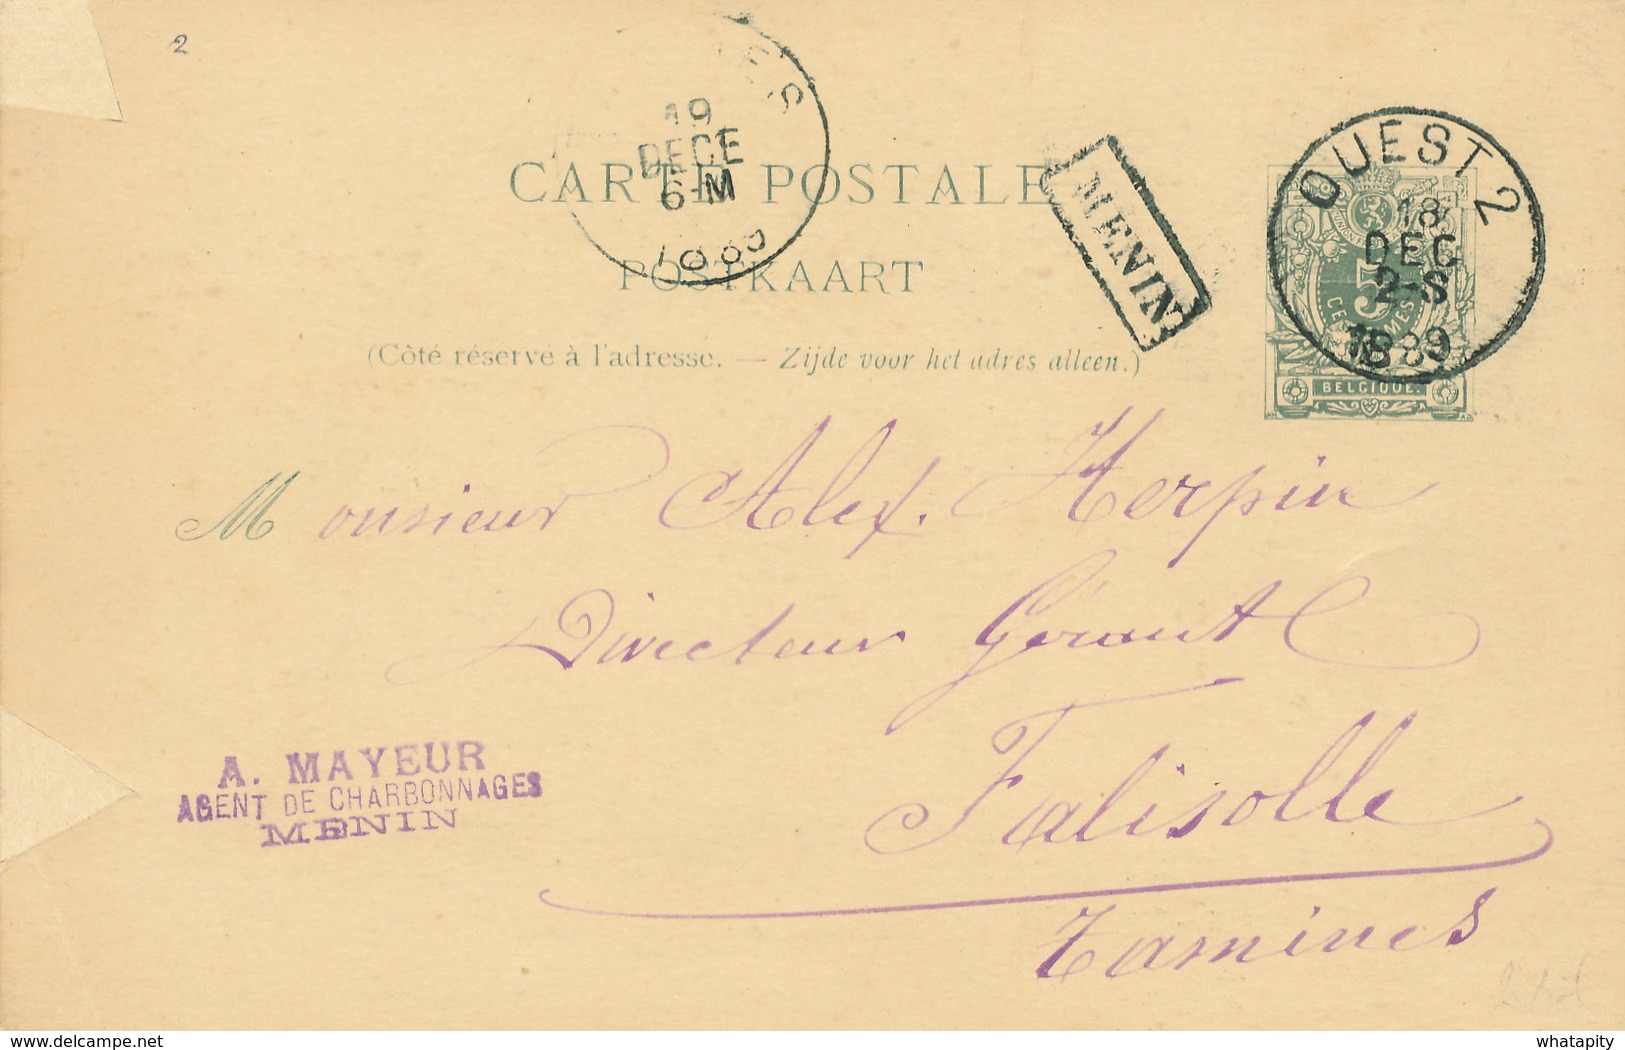 2
ES
19
DECE
6-M
1889
CARTE POSTALE
POSTKAART
(Côté réservé à l'adresse. — Zijde voor het adres alleen.)
MENIN
OUEST 2
18
DEC
2-S
1889
5
BELGIQUE.
Monsieur Alex. Herpin
Directeur Gérant
Falisolle
Tamines
A. MAYEUR
AGENT DE CHARBONNAGES
MENIN
delcampe.net
whatapity